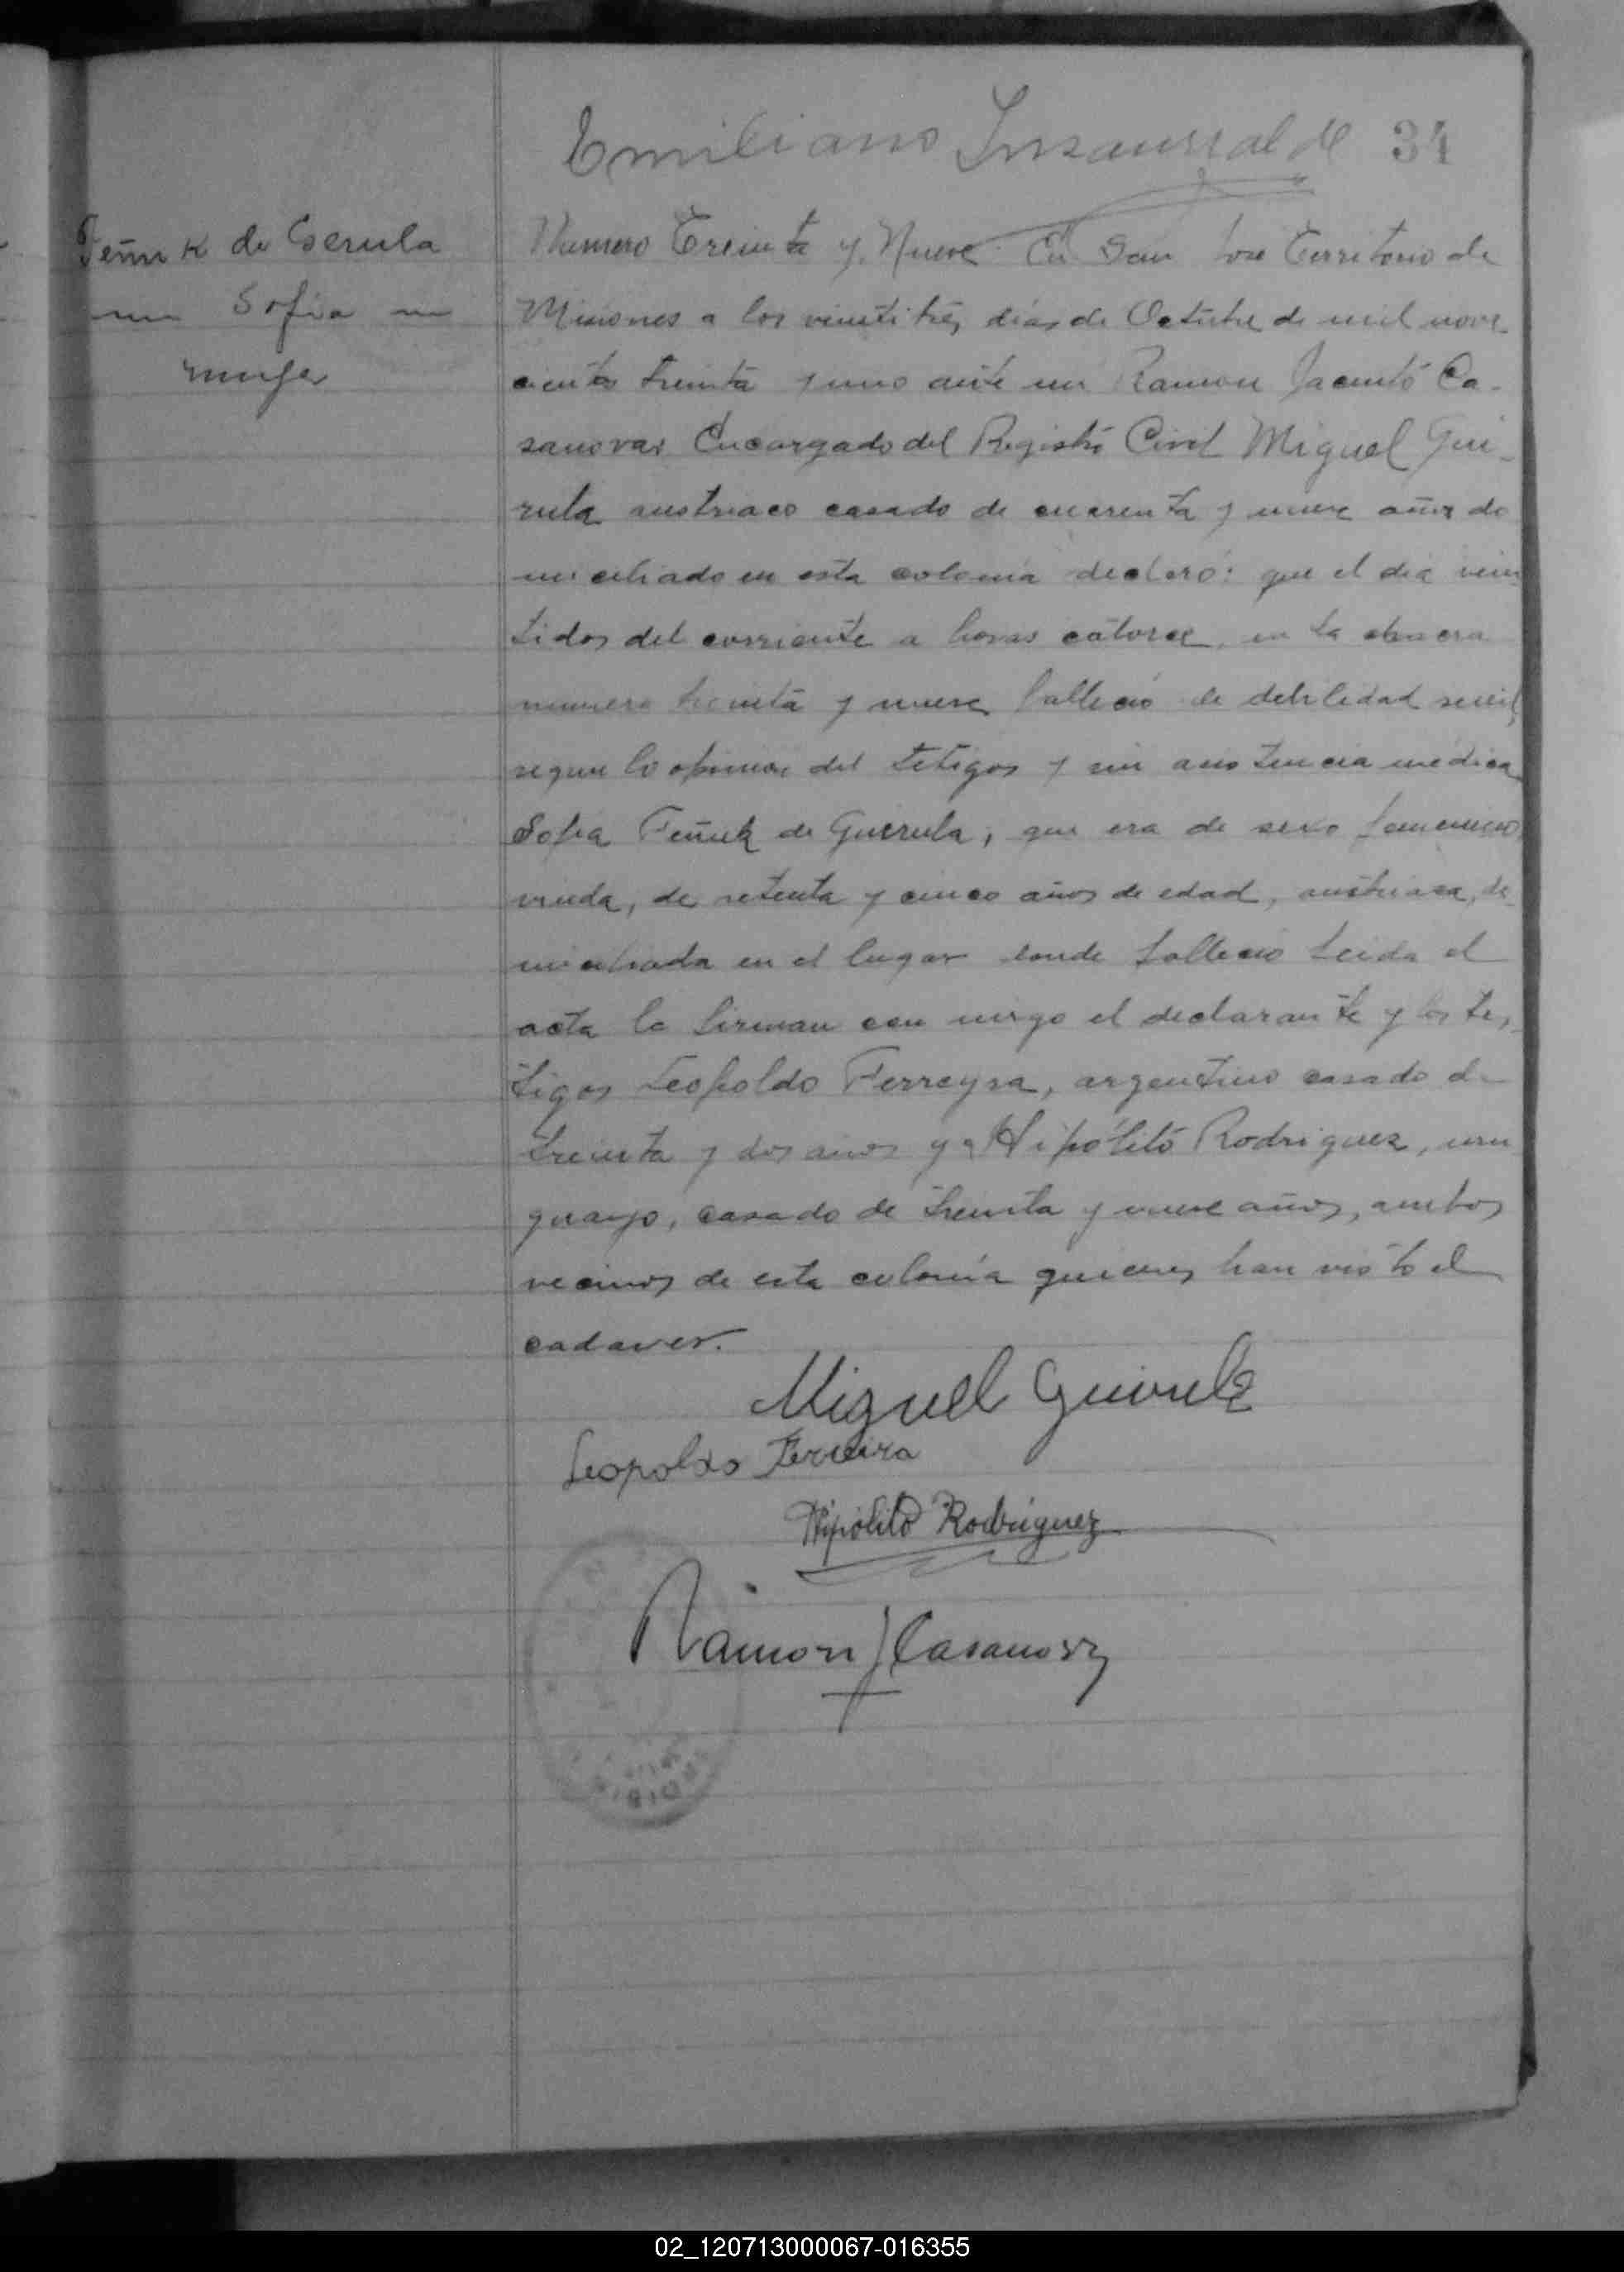 Emiliano Insaurralde 34
Feñuk de Gerula
Sofia
mujer
Numero Treinta y Nueve. En San Jose Territorio de
Misiones a los veintitres dias de Octubre de mil nove
cientos treinta y uno ante mi Ramon Jacinto Ca-
sanovas Encargado del Registro Civil Miguel Gui-
rula austriaco casado de cuarenta y nueve años do
miciliado en esta colonia declaró: que el dia vein
tidos del corriente a horas catorce, en la chacra
numero treinta y nueve fallecio de debilidad senil,
segun lo opinion del tetigos y sin asistencia medica
Sofia Feñuk de Guerula, que era de sexo femenino
viuda, de setenta y cinco años de edad, austriaca, do
miciliada en el lugar donde fallecio Leida el
acta la firman con migo el declarante y los tes-
tigos Leopoldo Ferreyra, argentino casado de
treinta y dos años y Hipólito Rodriguez, uru
guayo, casado de treinta y nueve años, ambos
vecinos de esta colonia quienes han visto el
cadaver.
Miguel Guirula
Leopoldo Ferreira
Hipólito Rodriguez
Ramon J Casanovas
02_120713000067-016355